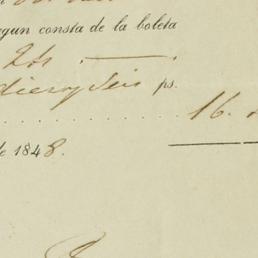 egun consta de la boleta
24
diez y seis ps.
16.
de 1848.